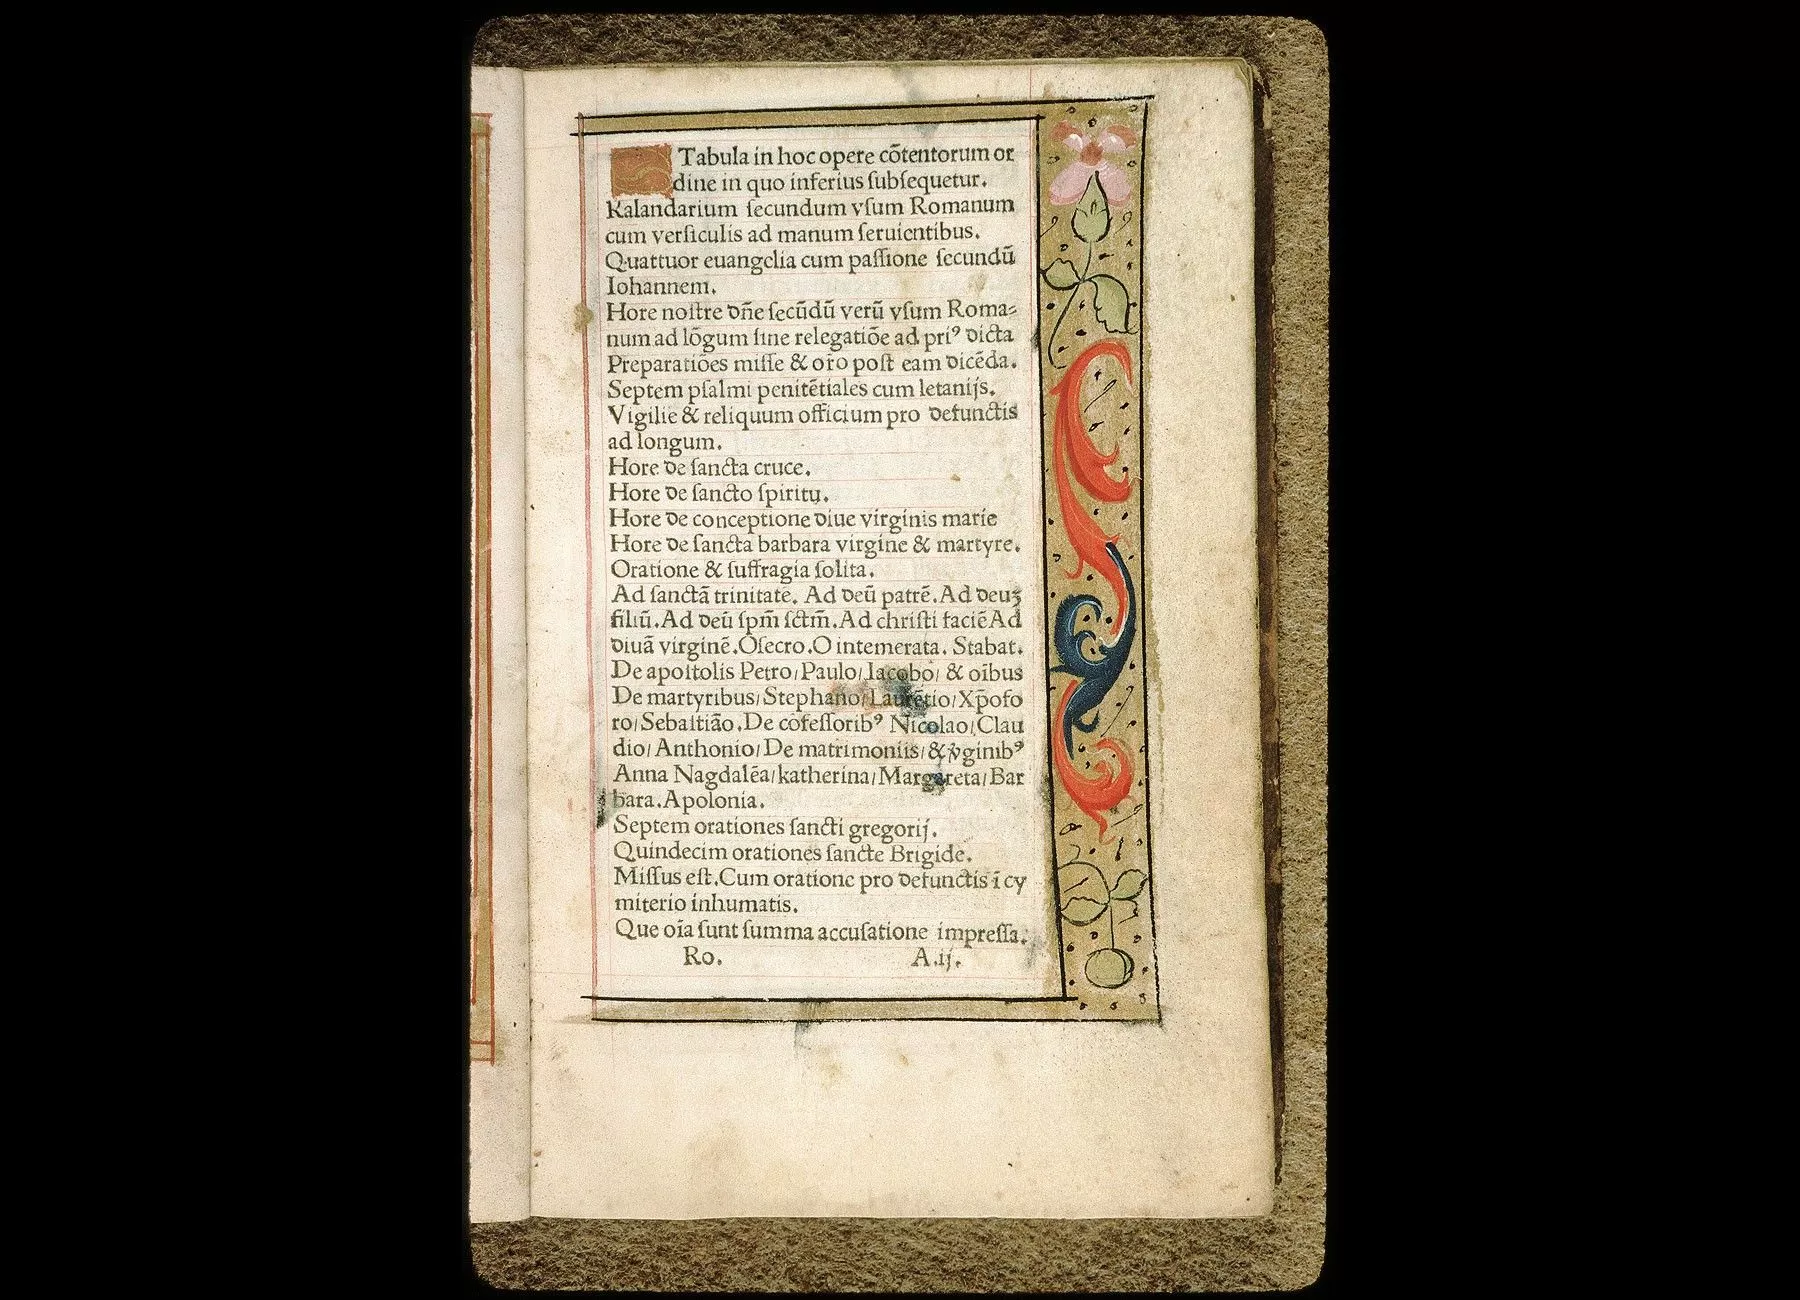 Tabula in hoc opere cõtentorum or
dine in quo inferius ſubſequetur.
Kalandarium ſecundum vſum Romanum
cum verſiculis ad manum ſeruientibus.
Quattuor euangelia cum paſſione ſecundũ
Iohannem.
Hore noſtre dñe ſecũdũ verũ vſum Roma⸗
num ad lõgum ſine relegatiõe ad priꝰ dicta
Preparatiões miſſe & orõ poſt eam dicẽda.
Septem pſalmi penitẽtiales cum letanijs.
Vigilie & reliquum officium pro defunctis
ad longum.
Hore de ſancta cruce.
Hore de ſancto ſpiritu.
Hore de conceptione diue virginis marie
Hore de ſancta barbara virgine & martyre.
Oratione & ſuffragia ſolita.
Ad ſanctã trinitatẽ. Ad deũ patrẽ. Ad deuʒ
filiũ. Ad deũ ſpm̃ ſctm̃. Ad chriſti faciẽ Ad
diuã virginẽ. Oſecro. O intemerata. Stabat.
De apoſtolis Petro/ Paulo/ Iacobo/ & oĩbus
De martyribus/ Stephano/ Laurẽtio/ Xp̃ofo
ro/ Sebaſtião. De cõfeſſoribꝰ Nicolao/ Clau
dio/ Anthonio/ De matrimoniis/ & ꝟginibꝰ
Anna Nagdalẽa/ katherina/ Margareta/ Bar
bara. Apolonia.
Septem orationes ſancti gregorij.
Quindecim orationes ſancte Brigide.
Miſſus eſt. Cum oratione pro defunctis ĩ cy
miterio inhumatis.
Que oĩa ſunt ſumma accuſatione impreſſa.
Ro. A.ij.